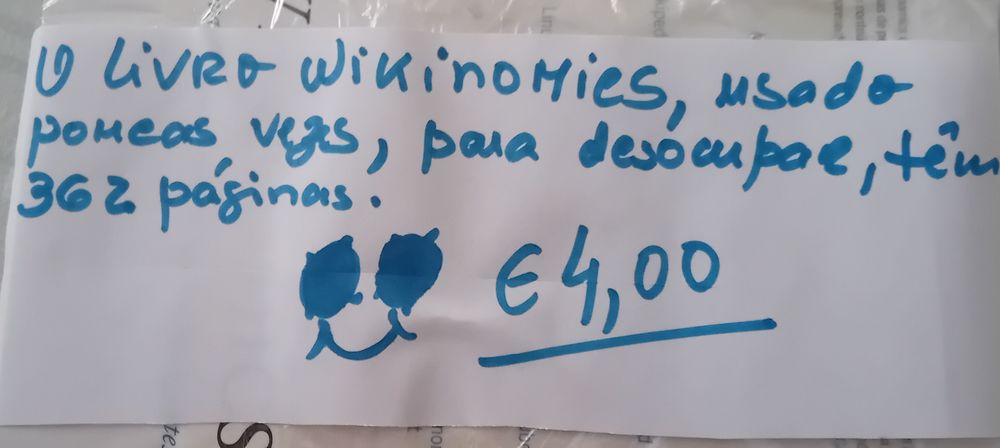 O Livro Wikinomics, usado
poucas vezes, para desocupar, têm
362 páginas.
€4,00